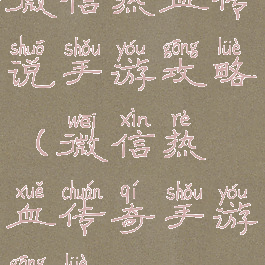 微信热血传
shuō shǒu yóu gōng lüè
说手游攻略
wēi xìn rè
(微信热
xuè chuán qí shǒu yóu
血传奇手游
gōng lüè